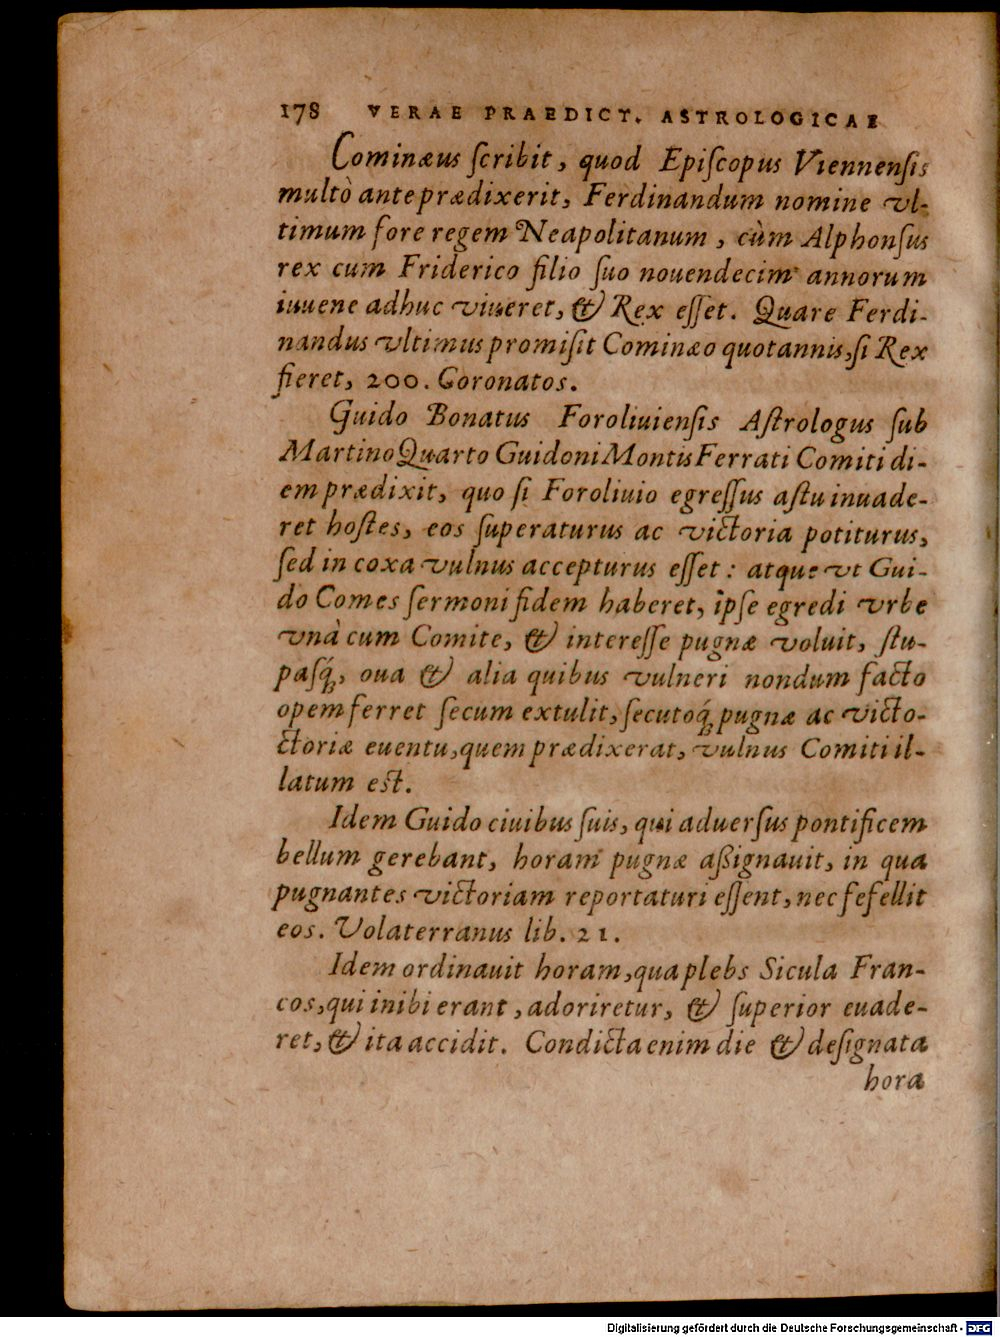 178 VERAE PRAEDICT. ASTROLOGICAE
Cominæus ſcribit, quod Epiſcopus Viennenſis
multò ante prædixerit, Ferdinandum nomine vl-
timum fore regem Neapolitanum, cùm Alphonſus
rex cum Friderico filio ſuo nouendecim annorum
iuuene adhuc viueret, & Rex eſſet. Quare Ferdi-
nandus vltimus promiſit Cominæo quotannis, ſi Rex
fieret, 200. Coronatos.
Guido Bonatus Foroliuienſis Aſtrologus ſub
Martino Quarto Guidoni Montis Ferrati Comiti di-
em prædixit, quo ſi Foroliuio egreſſus aſtu inuade-
ret hoſtes, eos ſuperaturus ac victoria potiturus,
ſed in coxa vulnus accepturus eſſet: atque vt Gui-
do Comes ſermoni fidem haberet, ipſe egredi vrbe
vnà cum Comite, & intereſſe pugnæ voluit, ſtu-
paſq́;, oua & alia quibus vulneri nondum facto
opem ferret ſecum extulit, ſecutoq́; pugnæ ac victo-
ctoriæ euentu, quem prædixerat, vulnus Comiti il-
latum eſt.
Idem Guido ciuibus ſuis, qui aduerſus pontificem
bellum gerebant, horam pugnæ aßignauit, in qua
pugnantes victoriam reportaturi eſſent, nec fefellit
eos. Volaterranus lib. 21.
Idem ordinauit horam, qua plebs Sicula Fran-
cos, qui inibi erant, adoriretur, & ſuperior euade-
ret, & ita accidit. Condicta enim die & deſignata
hora
Digitalisierung gefördert durch die Deutsche Forschungsgemeinschaft - DFG